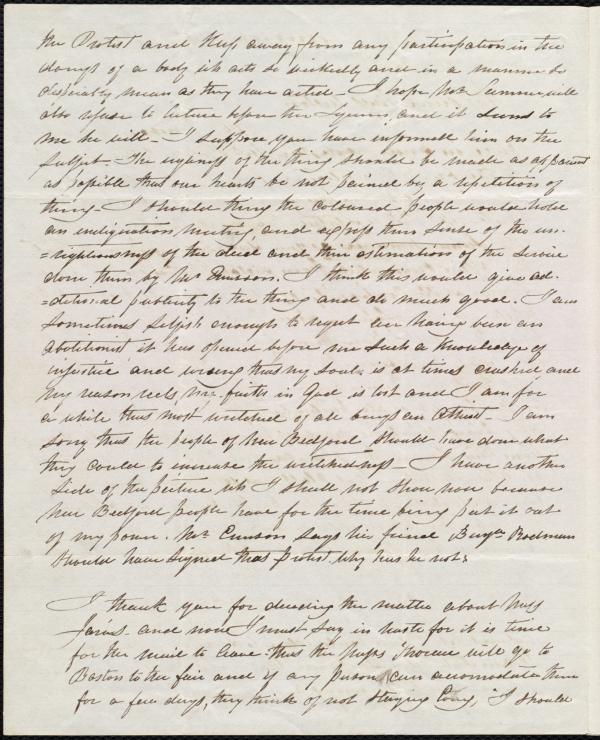 the Protest and keep away from any participation in the
doings of a body wh acts so wickedly and in a manner so
especially mean as they have acted - I hope Mr Sumner will
also refuse to lecture before the Lyceum, and it seems to
me he will - I suppose you have informed him on the
subject - The ugliness of the thing should be made as apparent
as possible that our hearts be not pained by a repetition of
thing - I should think the coloured people would hold
an indignation meeting and express their sense of the un-
=righteousness of the deed and their estimation of the service
done them by Mr Emerson. I think this would give ad-
=ditional publicity to the thing and do much good. I am
sometimes selfish enough to regret ever having been an
abolitionist it has opened before me such a knowledge of
injustice and wrong that my soul is at times crushed and
my reason reels, my faith in God is lost and I am for
a while that most wretched of all beings an Atheist - I am
sorry that the people of New Bedford should have done what
they could to increase the wretchedness - I have another
side of the picture wh I shall not show now because
New Bedford people have for the time being put it out
of my power. Mr Emerson says his friend Benjn Rodman
should have signed that protest. Why has he not?
I thank you for deciding the matter about Miss
and now I must say in haste for it is time
for the mail to leave that the Misses Thoreau will go to
Boston to the fair and if any person can accomodate them
for a few days, they think of not staying long, I should